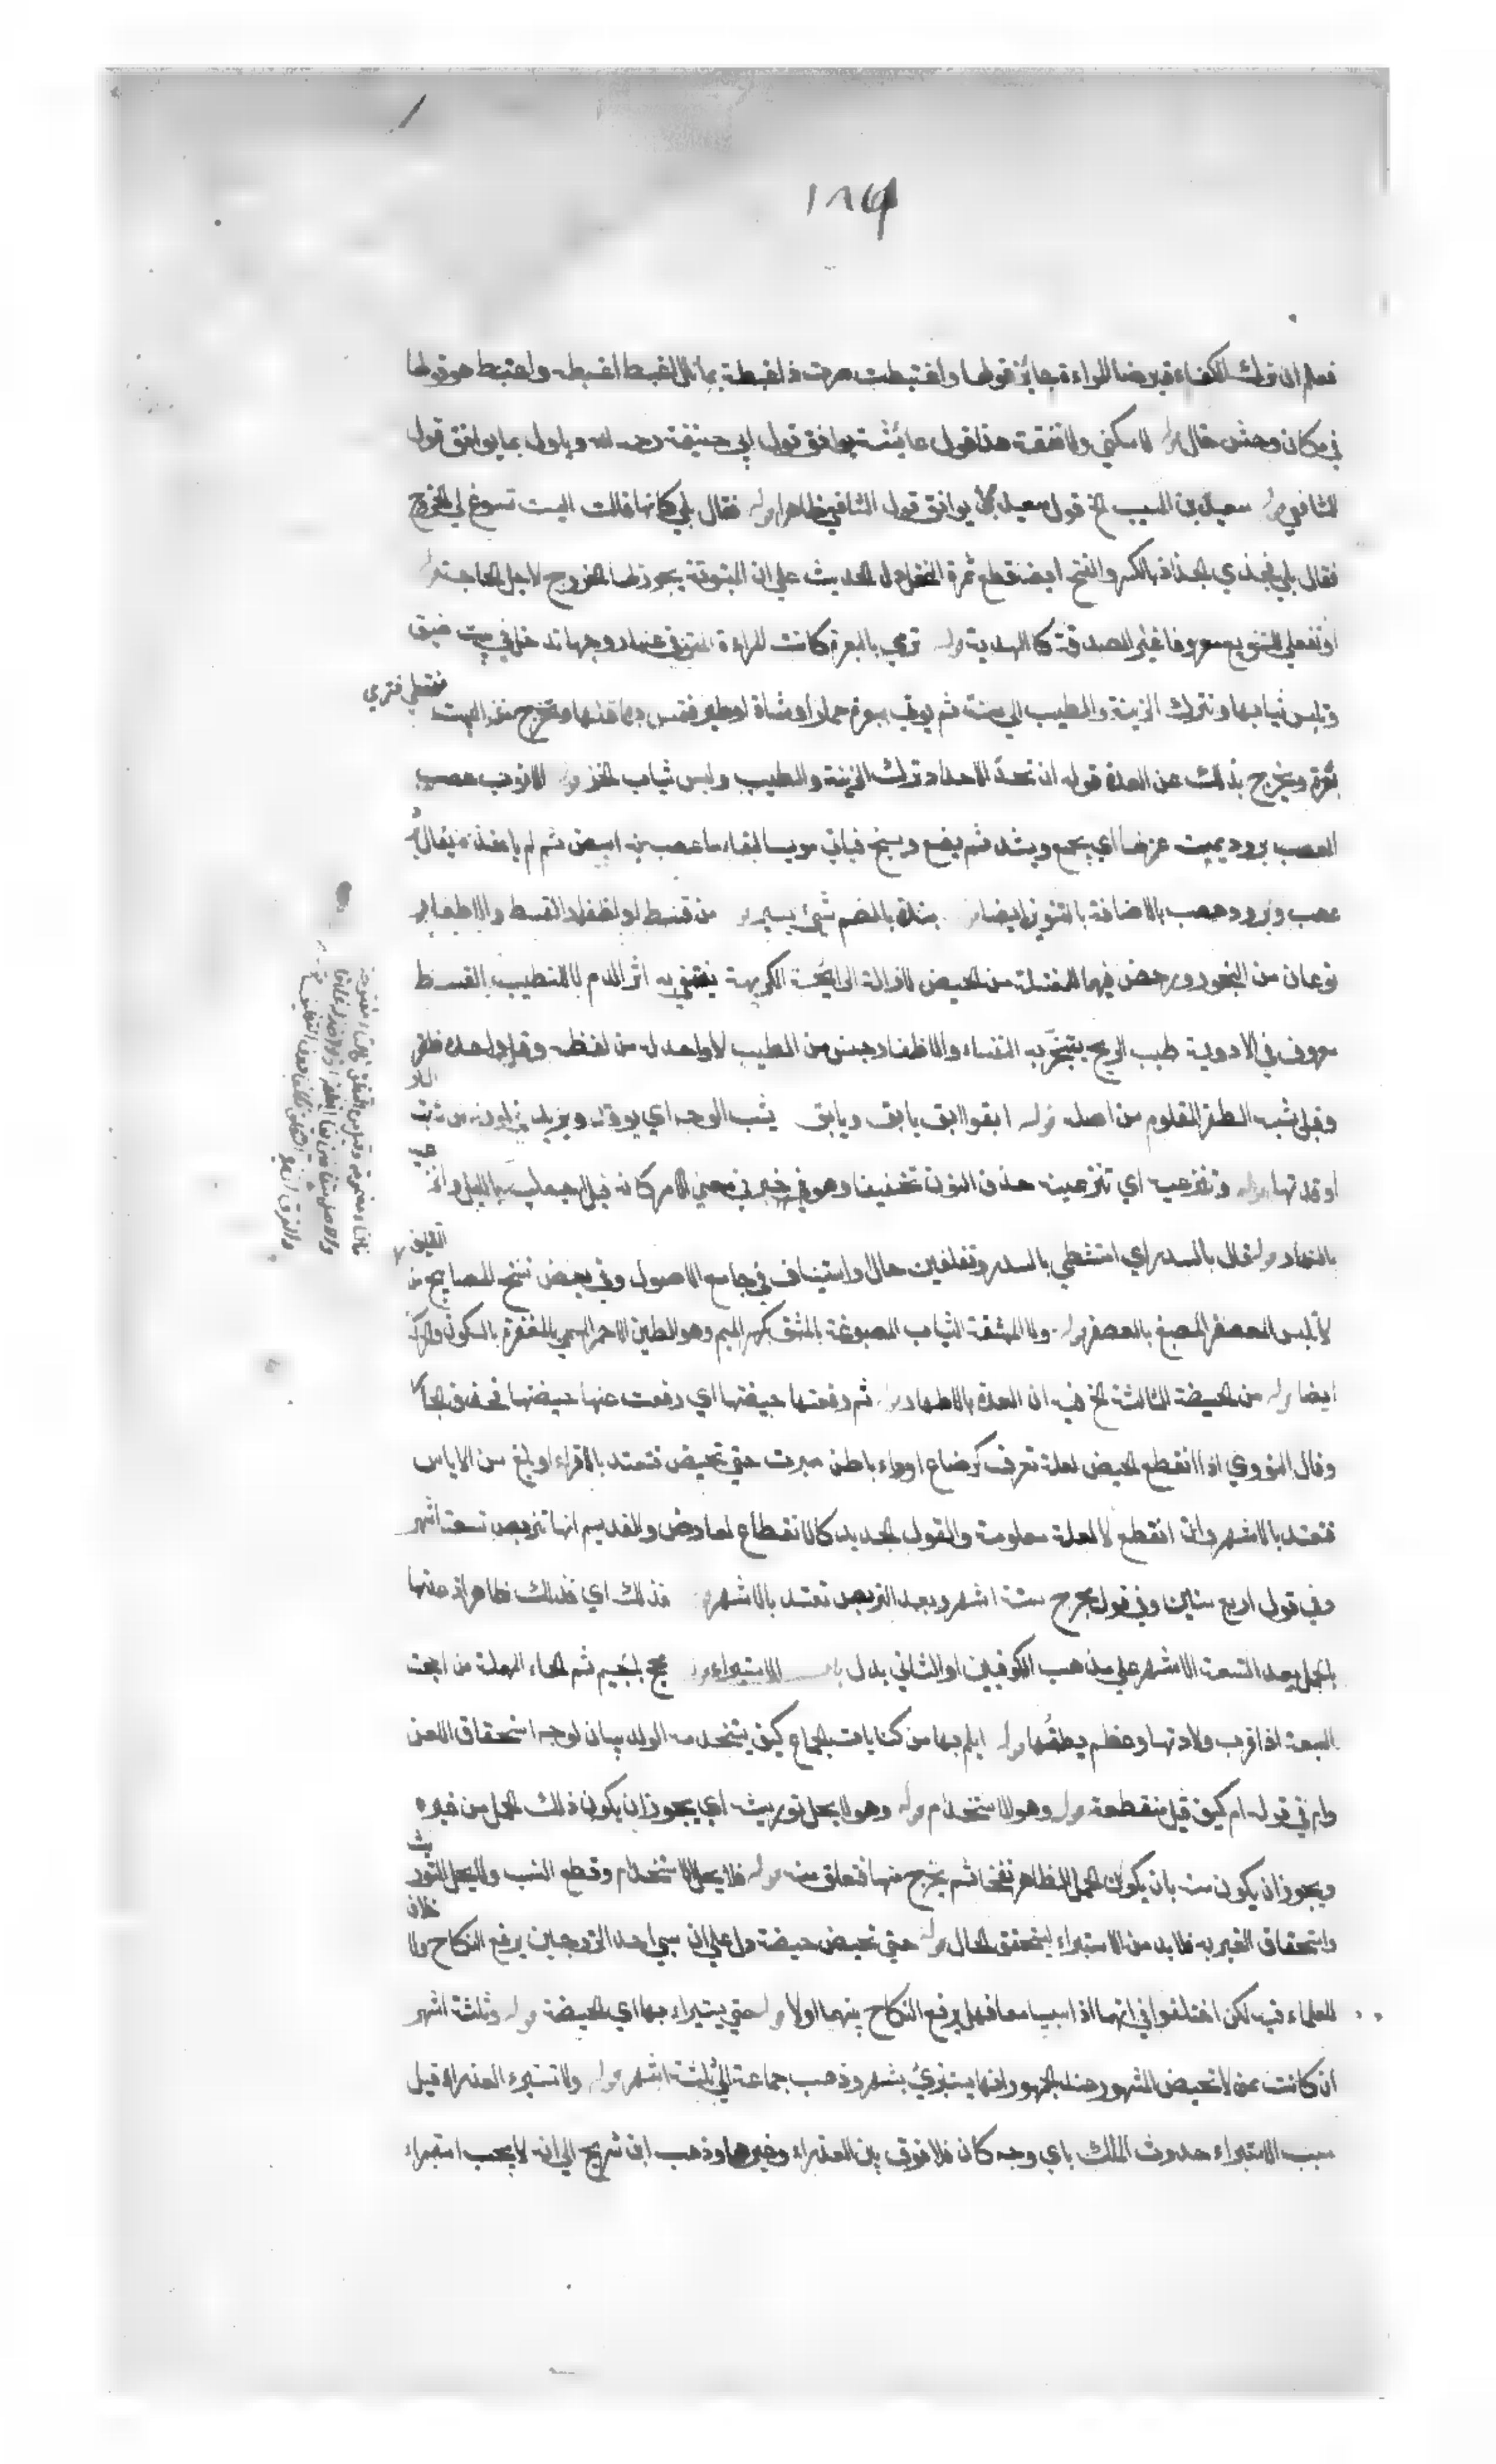 ١٨٤
فعلم ان ترك الكفاءة برضا المراءة جائز قولها واغتبطت صرت ذا غبطة بما نال اغبط اغبطه واغتبط هو قولها
في مكان وحش قال قوله لا سكنى ولا نفقة هذا قول عائشة يوافق قول ابي حنيفة رحمه الله وياول بما يوافق قول
الشافعي قوله سعيد بن المسيب الخ قول سعيد يوافق قول الشافعي ظاهرا قوله فقال بلى كانها قالت اليست تسوغ لي الخروج
فقال بلى فجذي الجذاذ بالكسر والفتح ايضا قطع ثمرة النخل دل الحديث على ان المبتوتة يجوز لها الخروج لاجل الحاجة قوله
او تفعلي للتنويع معروفا غير الصدقة كالهدية قوله ترمي بالبعرة كانت المراءة المتوفى عنها زوجها تدخل في بيت ضيق
وتلبس ثيابها وتترك الزينة والطيب الى سنة ثم يوتى حمار او شاة او طير فتمس بها قبلها وتخرج من البيت
فتعطى فترمي
بعرة ويخرج بذلك عن العدة قوله ان تحد الاحداد ترك الزينة والطيب ولبس ثياب الخز قوله الا ثوب عصب
العصب برود يمنية عزلها اي يجمع ويشد ثم يصبغ وينسج فياتي موسيا لبقاء ما عصب به ابيض ثم لم ياخذه يقال
عصب وبرود عصب بالاضافة بالتنوين ايضا قوله نبذة بالضم شيئ يسير قوله من قسط او اظفار القسط والاظفار
نوعان من البخور ورخص فيهما للمغتسلة من الحيض لازالة الرائحة الكريهة يقتفى به اثر الدم لا للتطيب القسط
معروف في الادوية طيب الريح يتبخر به النفساء والاظفار جنس من الطيب لا واحد له من لفظه وقيل واحده ظفر
وقيل شبه الظفر المقلوم من اصله قوله ابقوا ابق يابق ويابق يشب الوجه اي يوقد ويزيد في لونه من شب
النار
او قدتها قوله وتنزعيه اي تنزعينه حذف النون تخفيفا وهو خبر في معنى الامر كانه قيل اجعليه بالليل وانز
عيه
بالنهار قوله قال بالسدر اي امتشطي بالسدر وتغلفين حال او استيناف في جامع الاصول وفي بعض نسخ المصابيح من
التغليف
لا تلبس المعصفر المصبغ بالعصفر قوله ولا الممشقة الثياب المصبوغة بالمشق بكسر الميم وهو الطين الاحمر المسمى بالمغرة بالسكون
ايضا قوله من الحيضة الثالثة الخ فيه ان العدة بالاطهار قوله ثم رفعتها حيضتها اي رفعت عنها حيضتها فحذف الجار
وقال النووي اذا انقطع الحيض لعلة تعرف كرضاع او داء باطن صبرت حتى تحيض فتعتد بالاقراء او تبلغ سن الاياس
فتعتد بالاشهر وان انقطع لا لعلة معلومة والقول الجديد كالانقطاع لعارض والقديم انها تتربص تسعة اشهر
وفي قول اربع سنين وفي قول مخرج ستة اشهر وبعد التربص تعتد بالاشهر قوله فذلك اي فذلك ظاهر اذ عدتها
بالحمل بعد التسعة الاشهر على مذهب الكوفيين او الثاني بدل الاستبراء قوله مجح بالجيم ثم الحاء المهملة من اجحت
السبعة اذا قرب ولادتها وعظم بطنها قوله ايلم بها من كنايات الجماع كيف يستخدمه الولد بيان لوجه استحقاق اللعن
وام في قوله ام كيف قيل منقطعة قوله وهو الاستخدام قوله وهو لا يحل توريثه اي يجوز ان يكون ذلك الحمل من غيره
ويجوز ان يكون منه بان يكون الحمل الظاهر نفخا ثم يخرج منها فتعلق منه قوله فلا يحل الاستخدام وقطع النسب ولا يحل التور
يث
واستحقاق الغير به فلا بد من الاستبراء ليتحقق الحال قوله حتى تحيض حيضة دل على ان سبي احد الزوجين يرفع النكاح ولا
خلاف
للعلماء فيه لكن اختلفوا في انهما اذا سبيا معا فهل يرفع النكاح بينهما اولا قوله حتى يستبراء بها اي الحيضة قوله وثلثة اشهر
ان كانت ممن لا تحيض المشهور عند الجمهور انها يستبرئ بشهر وذهب جماعة الى ثلثة اشهر قوله ولا تستبرء العذراء قيل
سبب الاستبراء حدوث الملك باي وجه كان فلا فرق بين العذراء وغيرها وذهب ابن شريح الى انه لا يجب استبراء